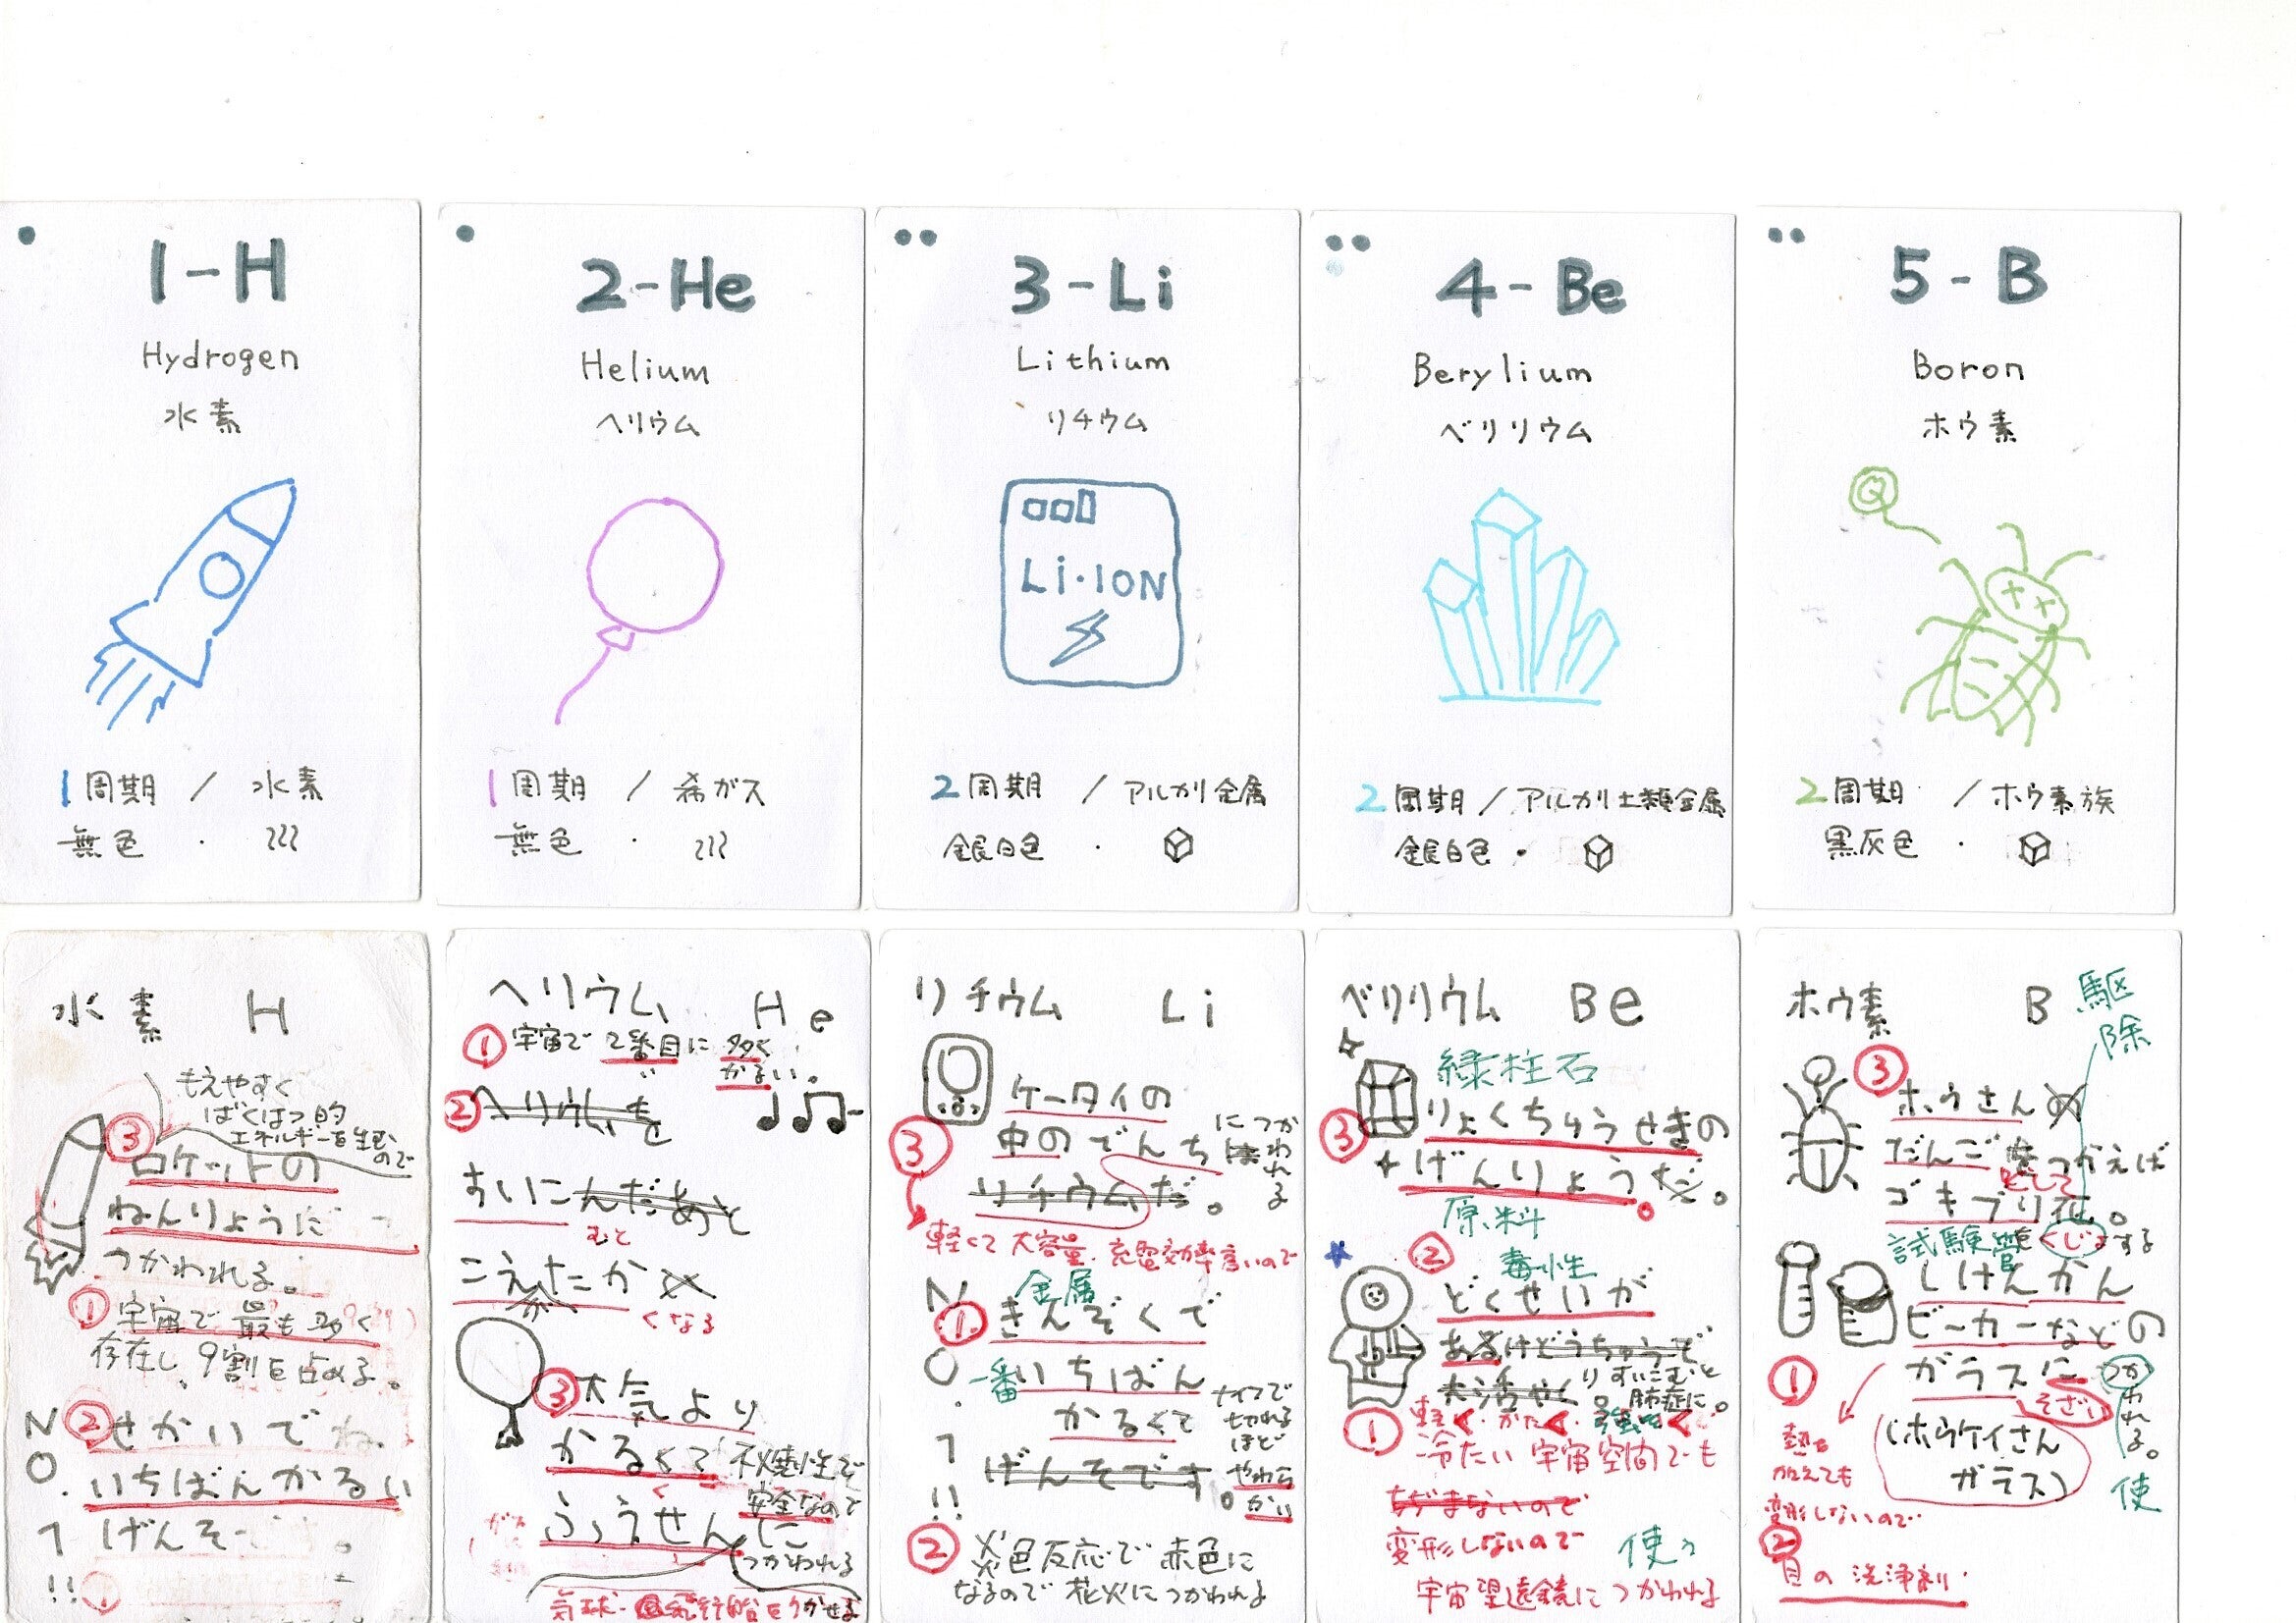 1-H
Hydrogen
水素
1周期 / 水素
無色 ・
2-He
Helium
ヘリウム
1周期 / 希ガス
無色 ・
3-Li
Lithium
リチウム
Li・ION
2周期 / アルカリ金属
銀白色 ・
4-Be
Berylium
ベリリウム
2周期 / アルカリ土類金属
銀白色 ・
5-B
Boron
ホウ素
2周期 / ホウ素族
黒灰色 ・
水素 H
もえやすく
ばくはつ的
エネルギーを生むので
③
ロケットの
ねんりょうに
つかわれる。
① 宇宙で最も多く
存在し、9割を占める。
NO.1!!
② せかいで
いちばんかるい
げんそ
ヘリウム He
① 宇宙で2番目に多く
かるい。
② ヘリウムを
すいこんだあと
むと
こえたか
が
くなる
③ 大気より
かるくて 不燃性で
安全なので
ふうせんに
つかわれる
リチウム Li
ケータイの
③ 中のでんち
につかわれる
リチウムだ。
軽くて 大容量、充電効率高いので
NO.1!!
金属
① きんぞくで
一番 いちばん
かるくて
ナイフで
切れる
ほど
やわら
かい
げんそです。
② 炎色反応で 赤色に
なるので 花火につかわれる
ベリリウム Be
緑柱石
③ りょくちゅうせきの
げんりょうだ。
原料
② 毒性
どくせいが
あるけどうちゅうで
大活やく
りすいこむと
肺症に。
① 軽く・かたく・強く
冷たい 宇宙空間でも
ちぢまないので
変形しないので
使う
宇宙望遠鏡に つかわれる
ホウ素 B
駆除
③ ホウさんの
だんごをつかえば
として
ゴキブリ
くじょする
試験管
しけんかん
ビーカーなどの
ガラスに
そざい
つかわれる。
使
(ホウケイさん
ガラス)
① 熱を
加えても
変形しないので
②
目の 洗浄剤